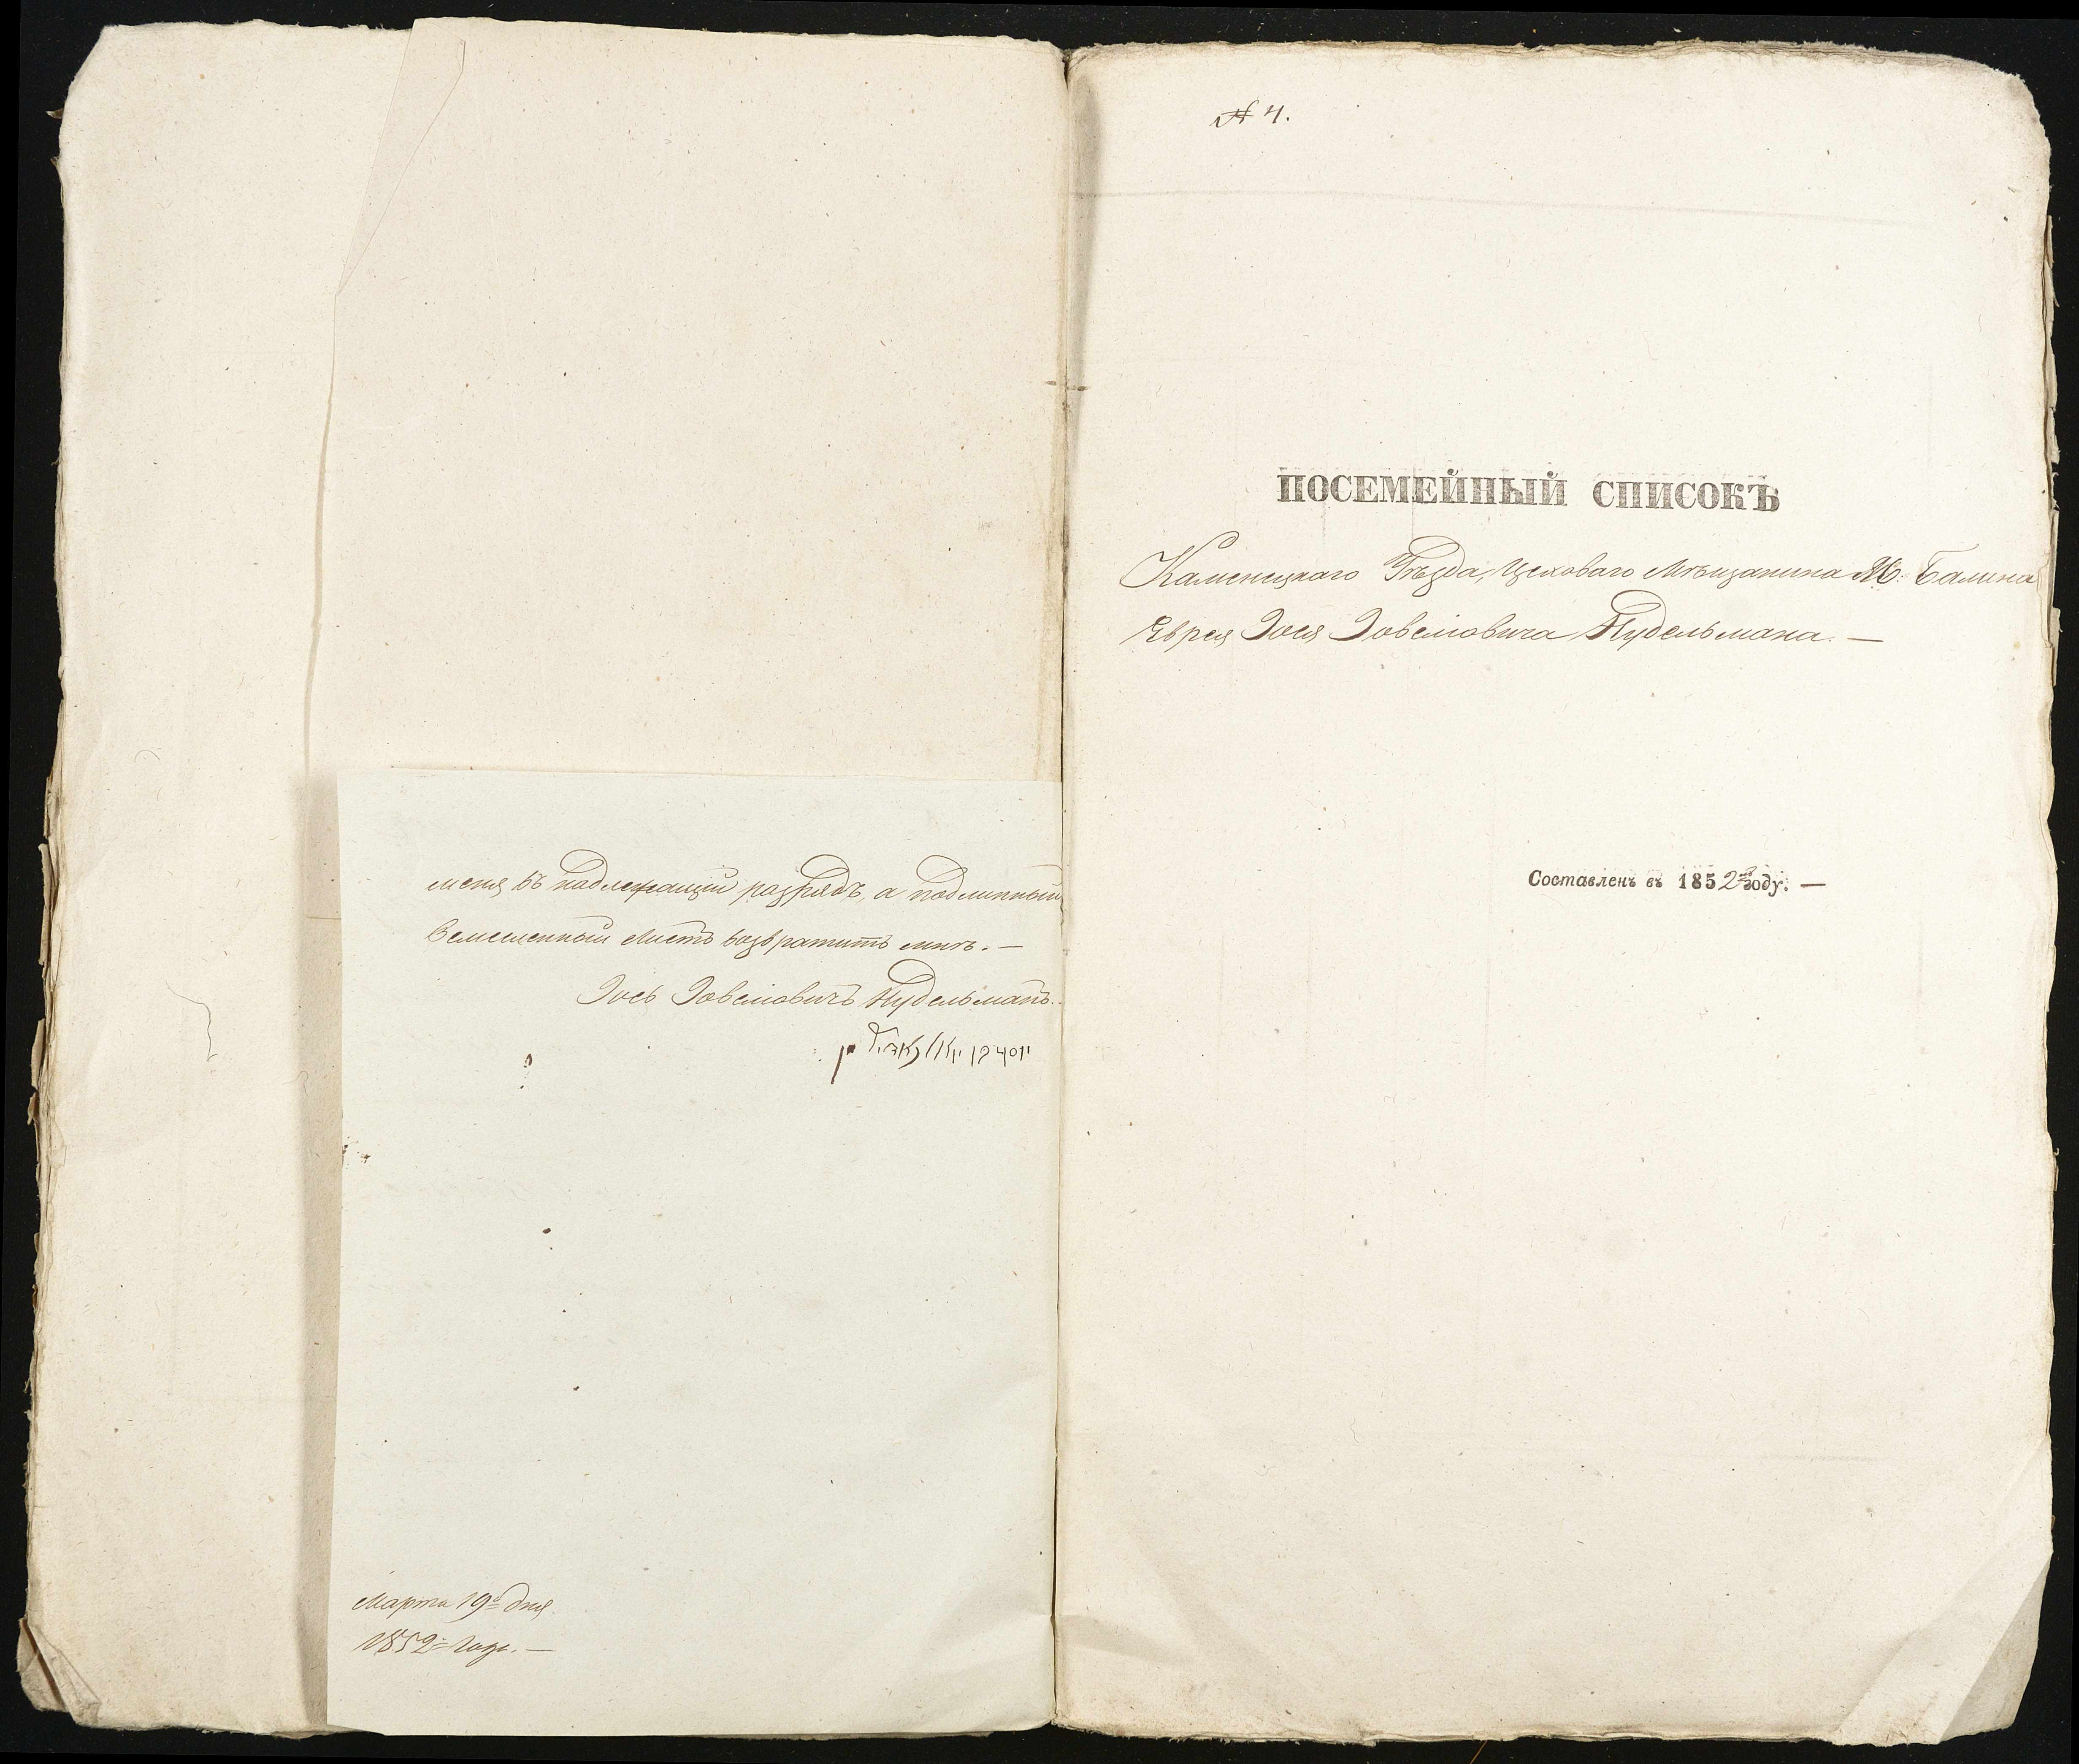 меня въ надлежащій разрядъ, а подлинный
Ремесленный Листъ возвратить мнѣ. —
Іось Іовеліовичъ Нудельманъ.
Марта 19го дня
1852го года. —
№ 4.
ПОСЕМЕЙНЫЙ СПИСОКЪ
Каменецкаго Уѣзда, Цеховаго Мѣщанина М: Балина
Еврея Іося Іовеліовича Нудельмана. —
Составленъ въ 1852м году. —